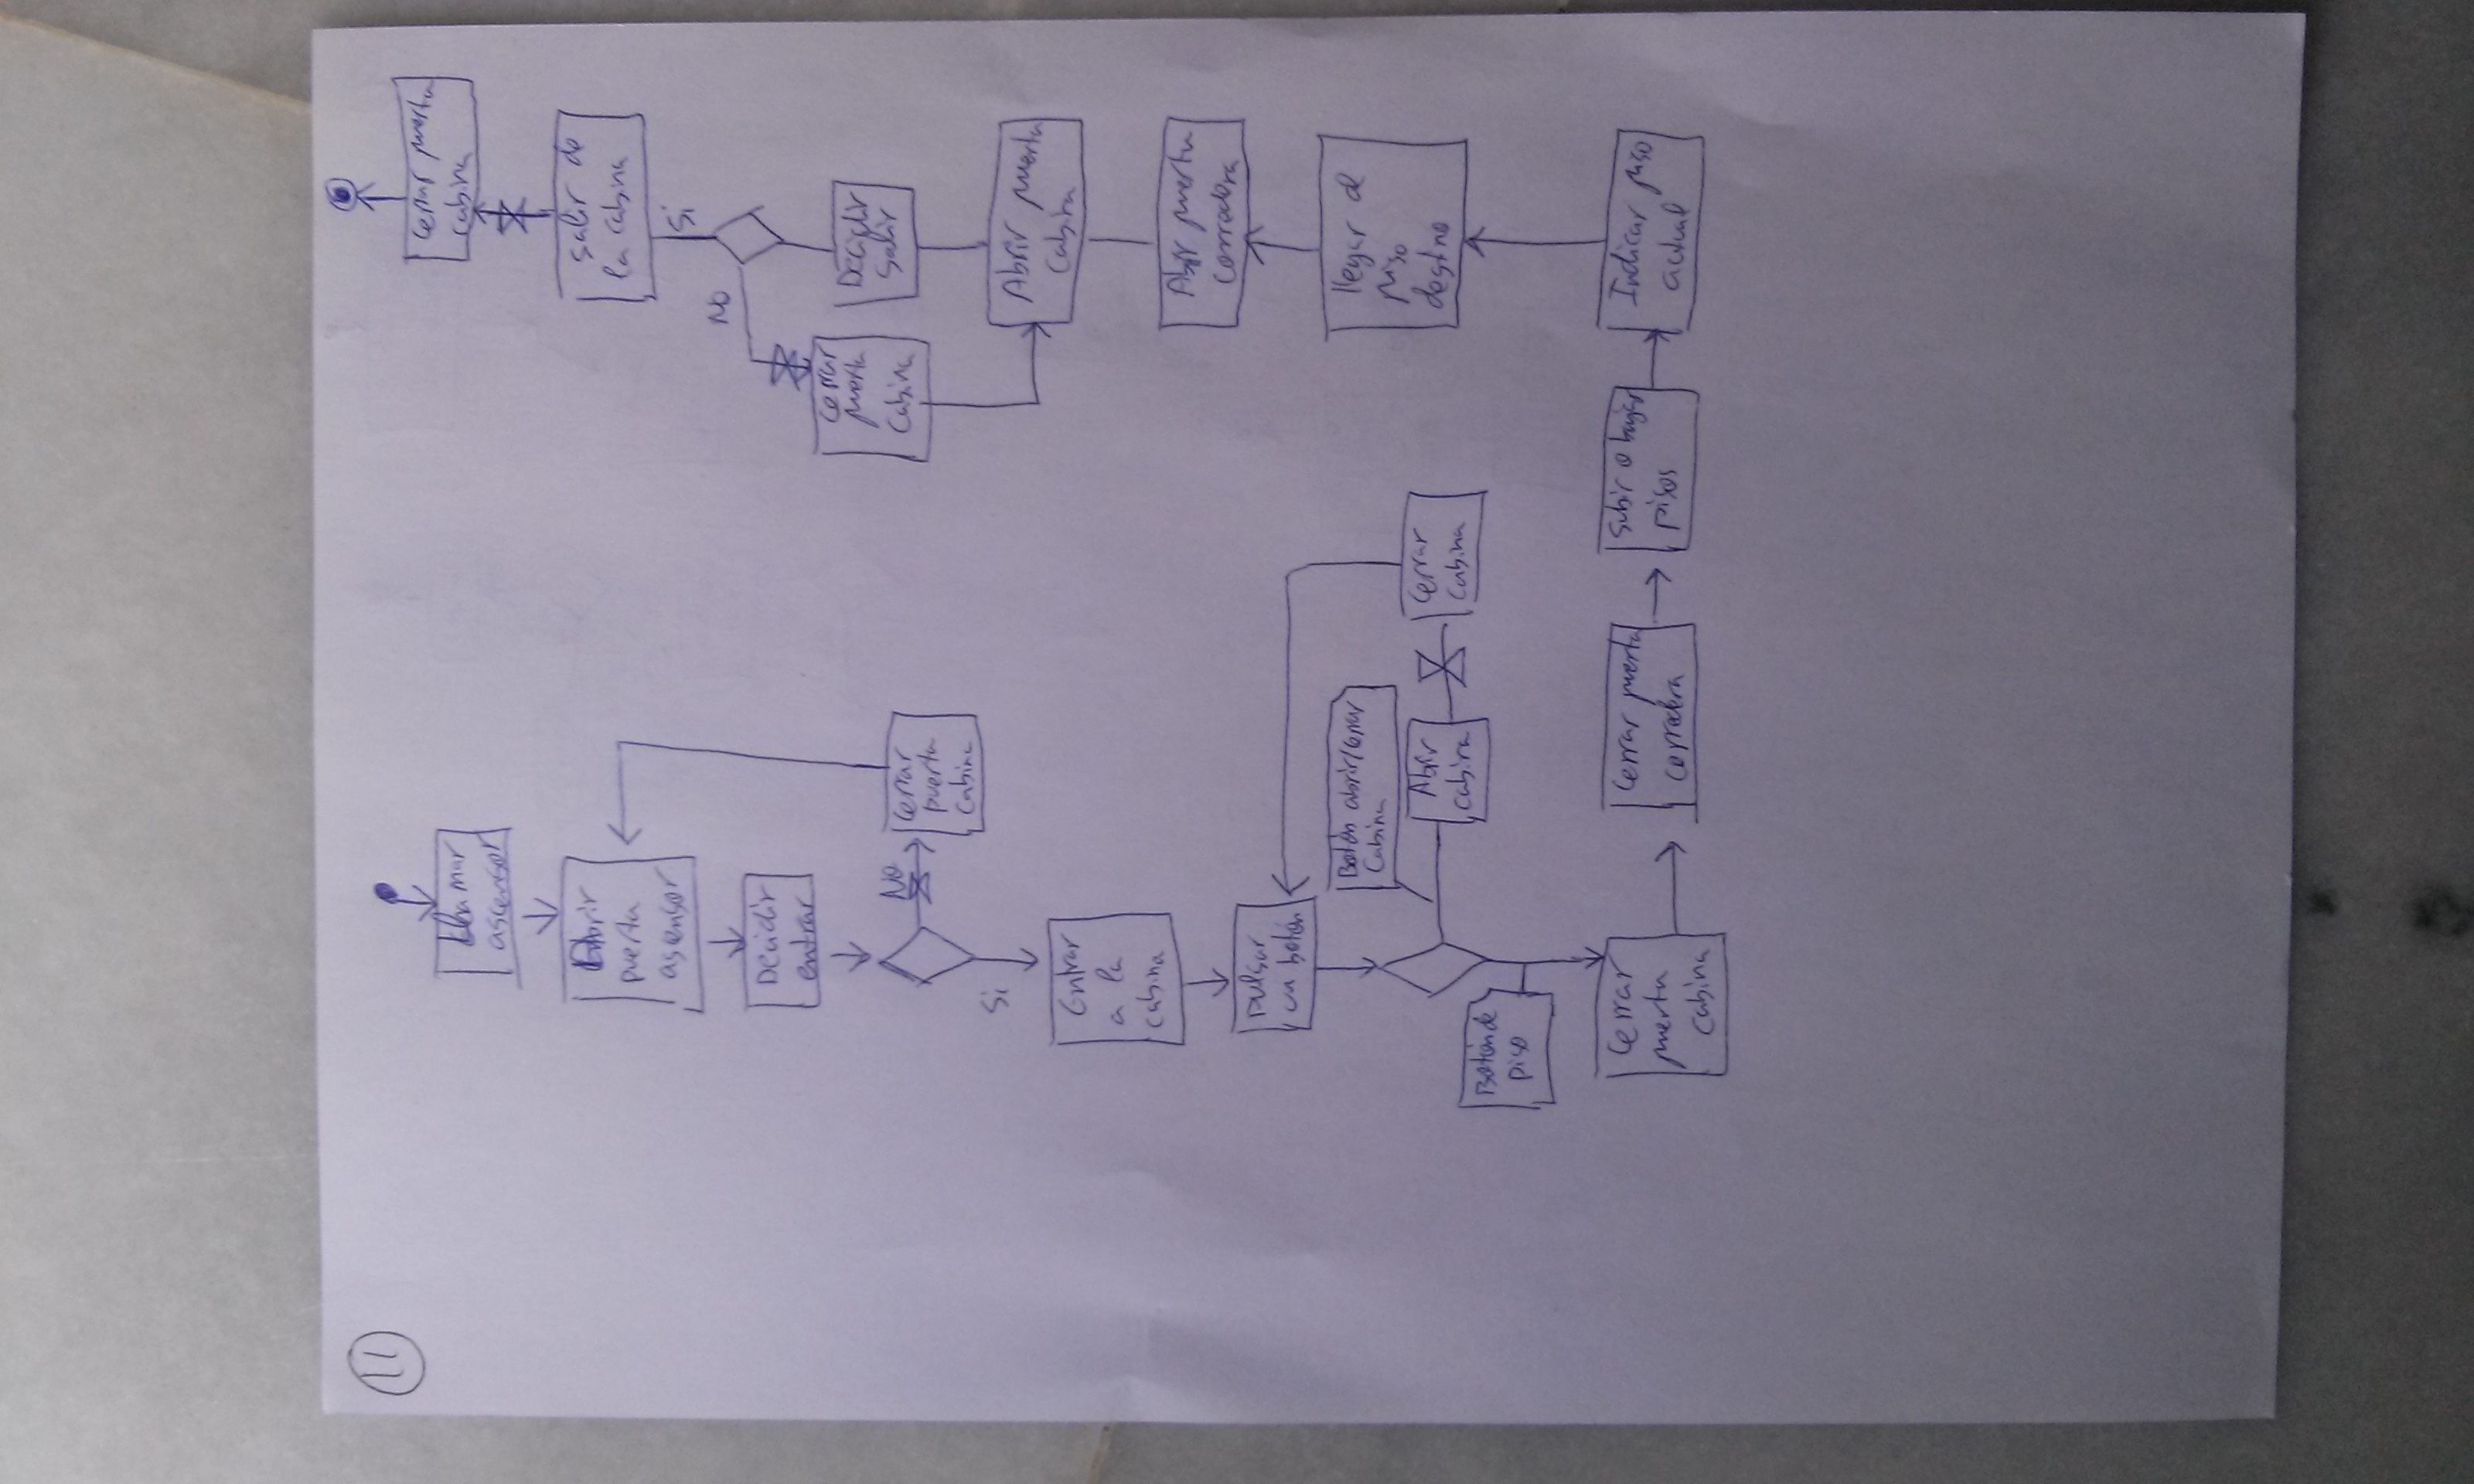 11
Llamar
ascensor
Abrir
puerta
ascensor
Decidir
entrar
No
Cerrar
puerta
cabina
Si
Entrar
a la
cabina
Pulsar
un botón
Botón abrir/cerrar
Cabina
Abrir
cabina
Cerrar
Cabina
Botón de
piso
Cerrar
puerta
cabina
Cerrar puerta
corredera
Subir o bajar
pisos
Indicar piso
actual
llegar al
piso
destino
Abrir puerta
corredera
Abrir puerta
Cabina
Decidir
Salir
No
Cerrar
puerta
Cabina
Si
Salir de
la cabina
Cerrar puerta
cabina